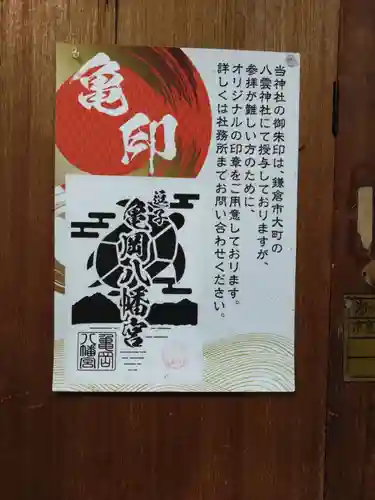 当神社の御朱印は、鎌倉市大町の
八雲神社にて授与しておりますが、
参拝が難しい方のために、
オリジナルの印章をご用意しております。
詳しくは社務所までお問い合わせください。
亀印
逗子
亀岡八幡宮
亀岡
八幡宮